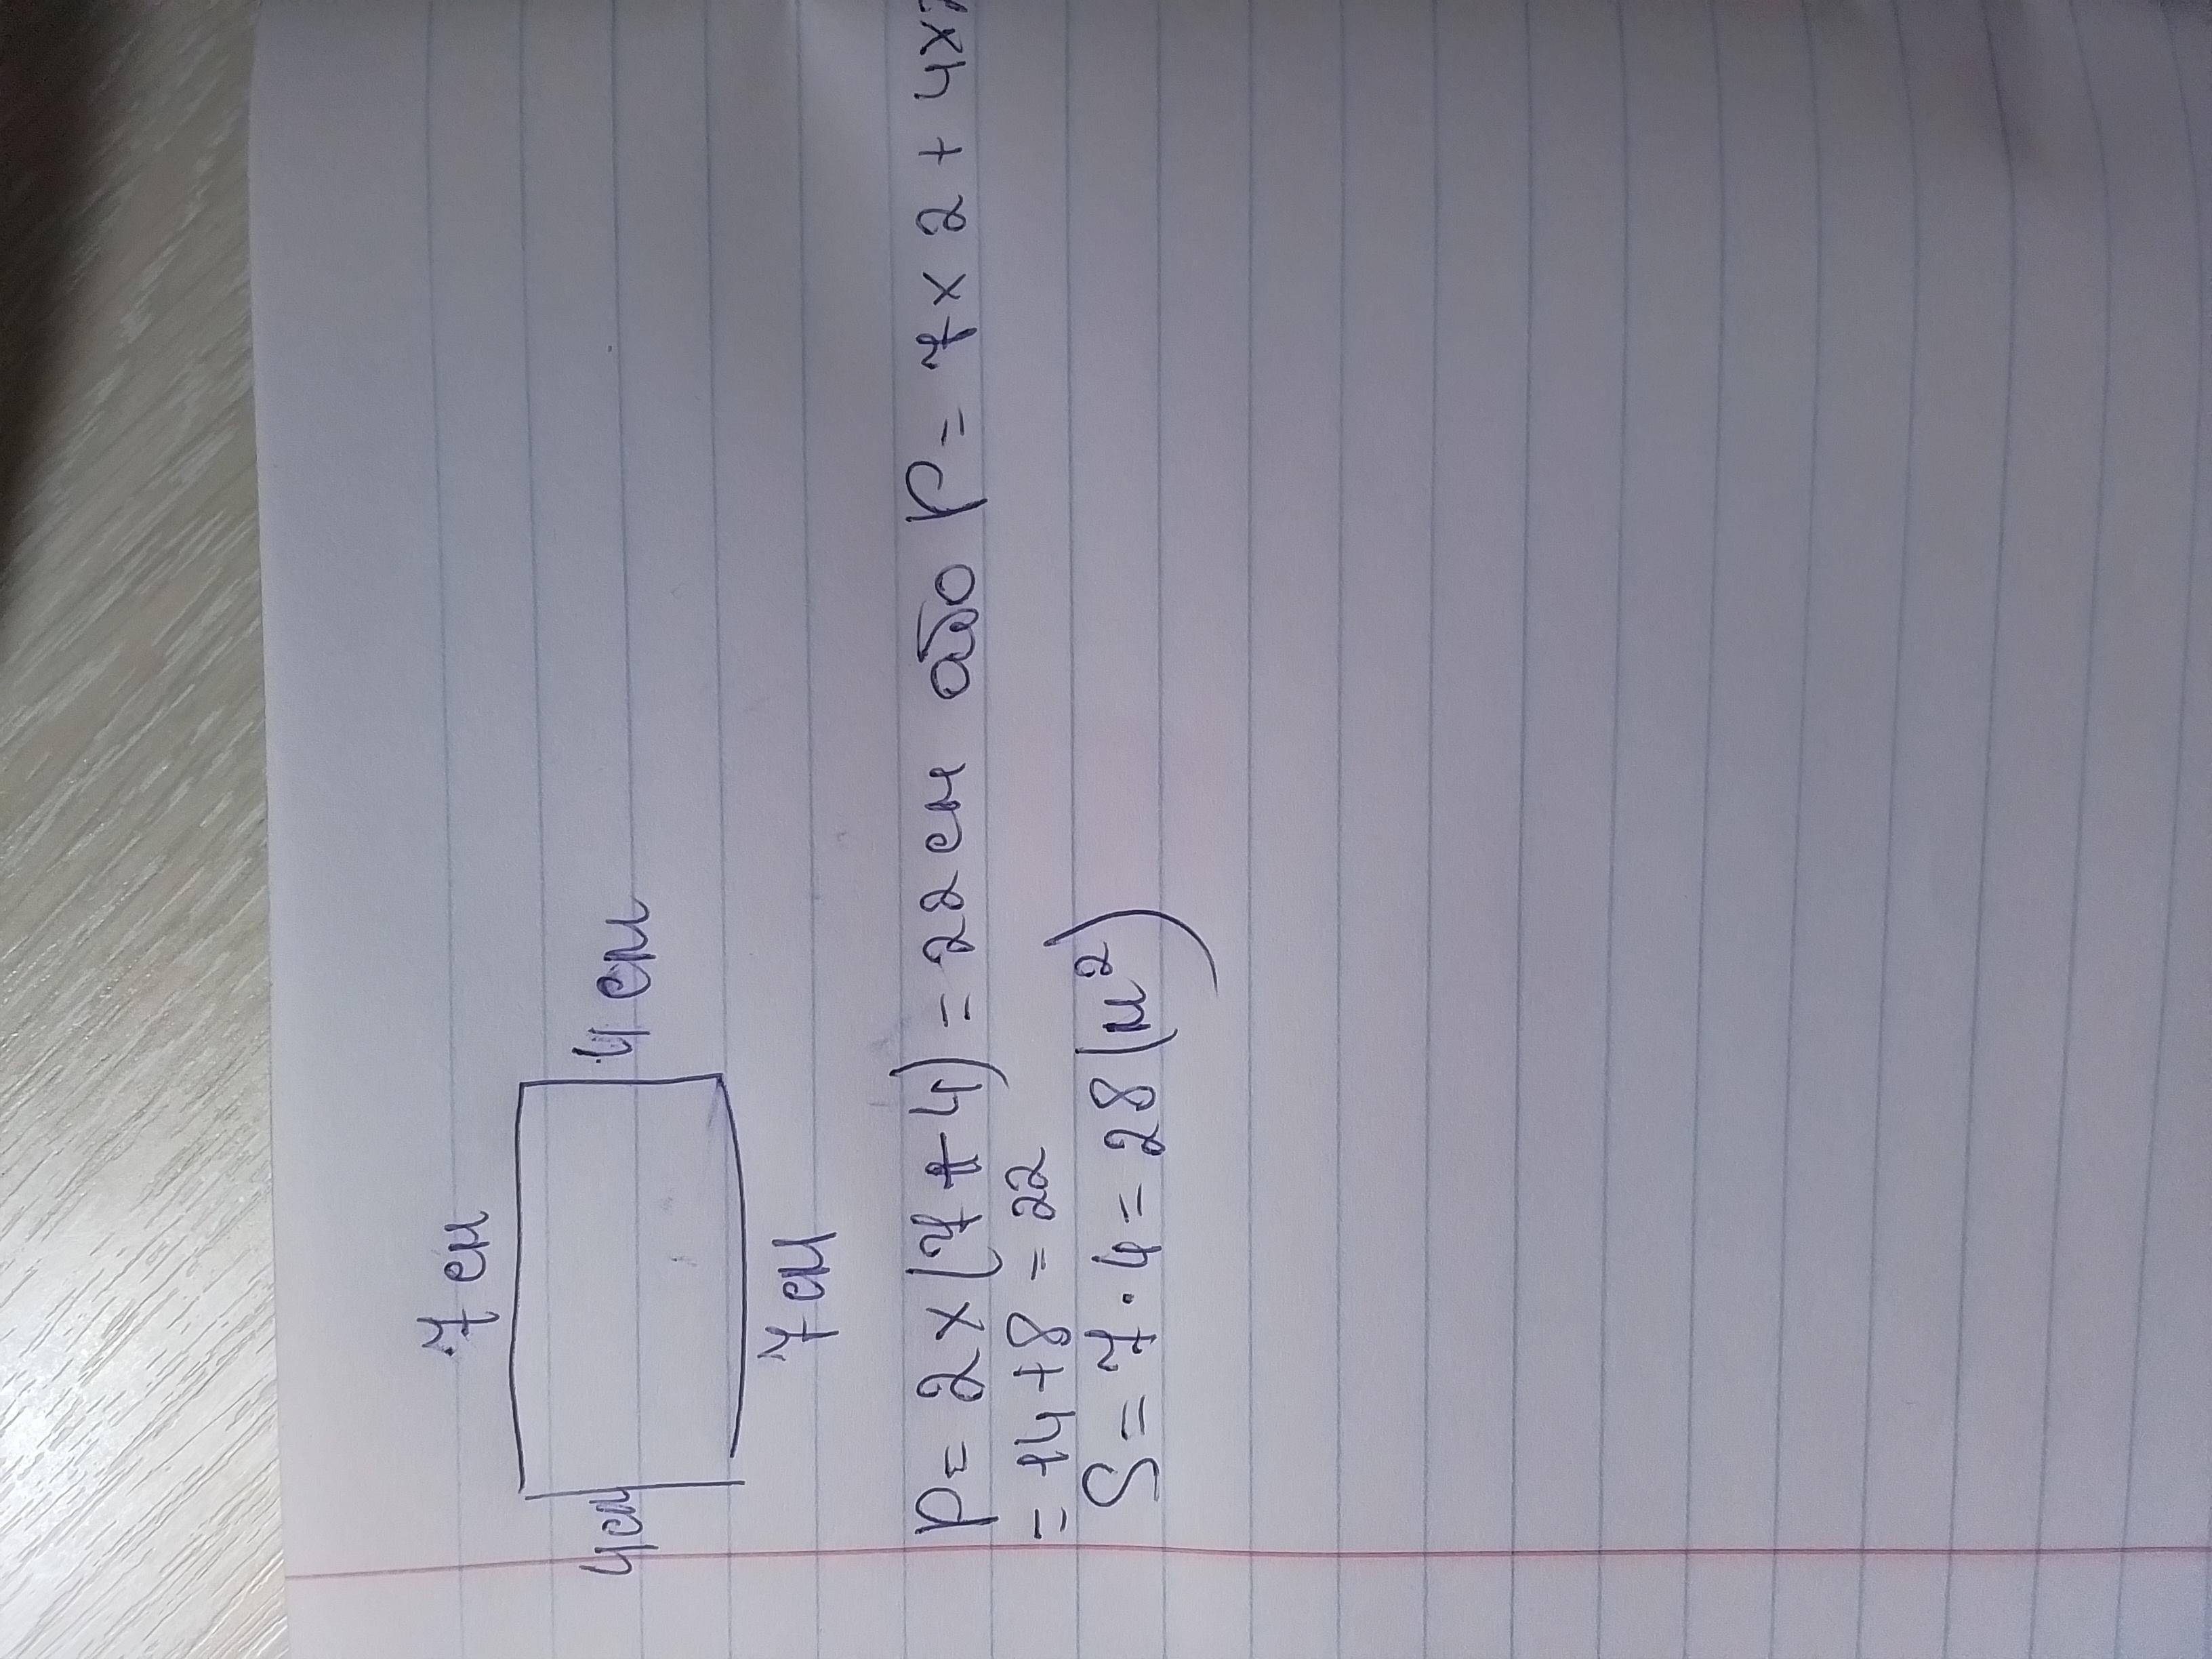 7 см
4см
4 см
7 см
P= 2 x (7+4) = 22 см або P = 7 x 2 + 4x
= 14 + 8 = 22
S = 7 · 4 = 28 (м²)